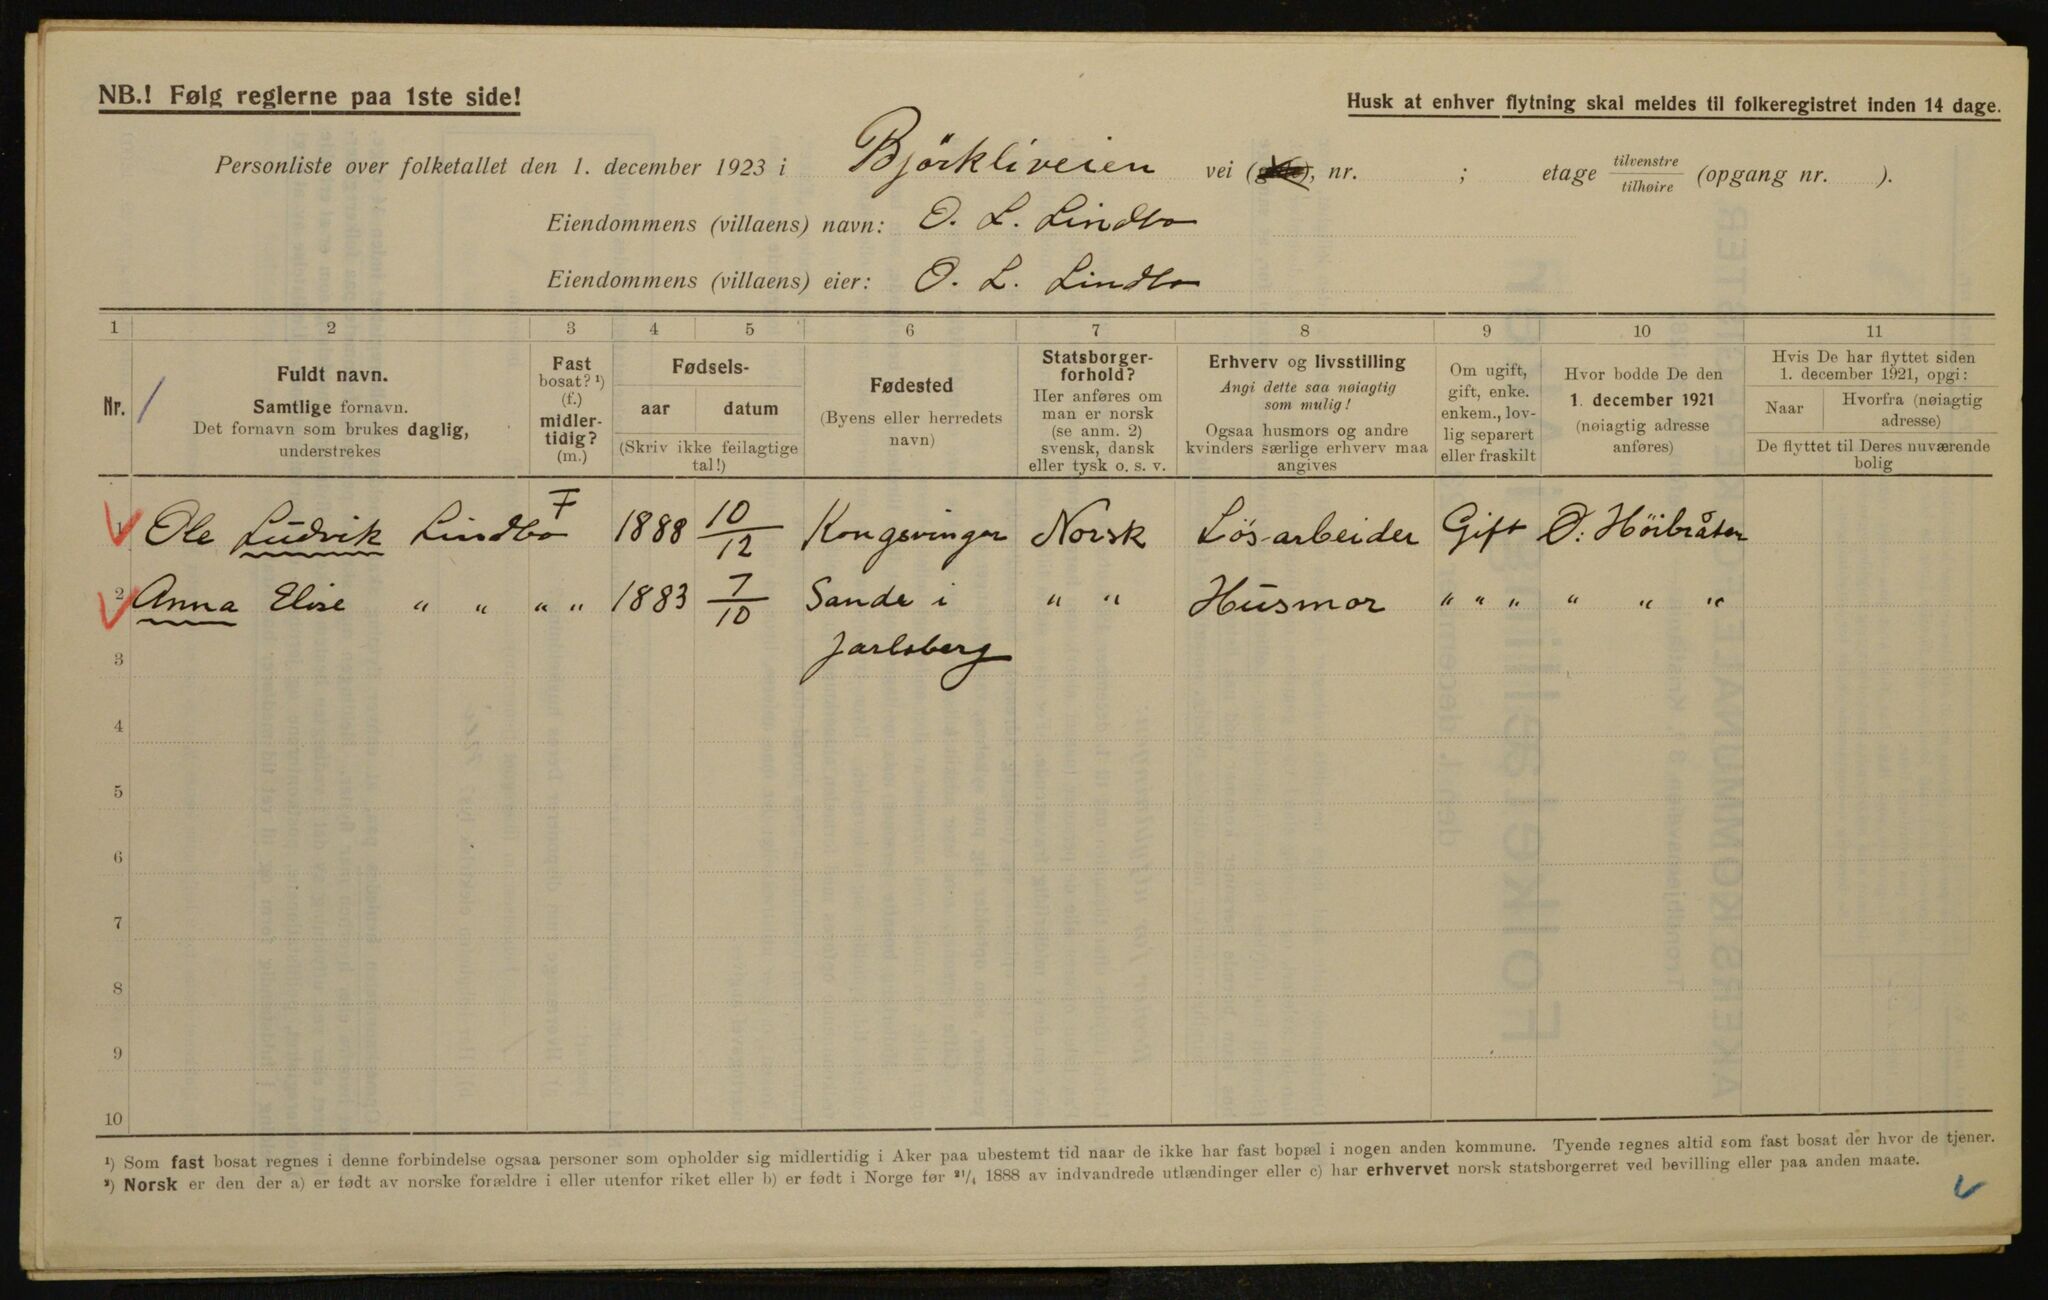 NB.! Følg reglerne paa 1ste side!
Husk at enhver flytning skal meldes til folkeregistret inden 14 dage.
Personliste over folketallet den 1. december 1923 i Bjørkliveien vei (gate), nr. ; etage tilvenstre/tilhøire (opgang nr. ).
Eiendommens (villaens) navn: O. L. Lindbo
Eiendommens (villaens) eier: O. L. Lindbo
1 2 3 4 5 6 7 8 9 10 11
Nr. /
Fuldt navn.
Samtlige fornavn.
Det fornavn som brukes daglig,
understrekes
Fast
bosat? ¹)
(f.)
midler-
tidig?
(m.)
Fødsels-
aar datum
(Skriv ikke feilagtige
tal!)
Fødested
(Byens eller herredets
navn)
Statsborger-
forhold?
Her anføres om
man er norsk
(se anm. 2)
svensk, dansk
eller tysk o. s. v.
Erhverv og livsstilling
Angi dette saa nøiagtig
som mulig!
Ogsaa husmors og andre
kvinders særlige erhverv maa
angives
Om ugift,
gift, enke.
enkem., lov-
lig separert
eller fraskilt
Hvor bodde De den
1. december 1921
(nøiagtig adresse
anføres)
Hvis De har flyttet siden
1. december 1921, opgi:
Naar Hvorfra (nøiagtig
adresse)
De flyttet til Deres nuværende
bolig
1 Ole Ludvik Lindbo F 1888 10/12 Kongsvinger Norsk Lösarbeider Gift Ö: Höibråten
2 Anna Elise " " " " 1883 7/10 Sande i " " Husmor " " " " " "
Jarlsberg
3
4
5
6
7
8
9
10
¹) Som fast bosat regnes i denne forbindelse ogsaa personer som opholder sig midlertidig i Aker paa ubestemt tid naar de ikke har fast bopæl i nogen anden kommune. Tyende regnes altid som fast bosat der hvor de tjener.
²) Norsk er den der a) er født av norske forældre i eller utenfor riket eller b) er født i Norge før ²¹/₄ 1888 av indvandrede utlændinger eller c) har erhvervet norsk statsborgerret ved bevilling eller paa anden maate.